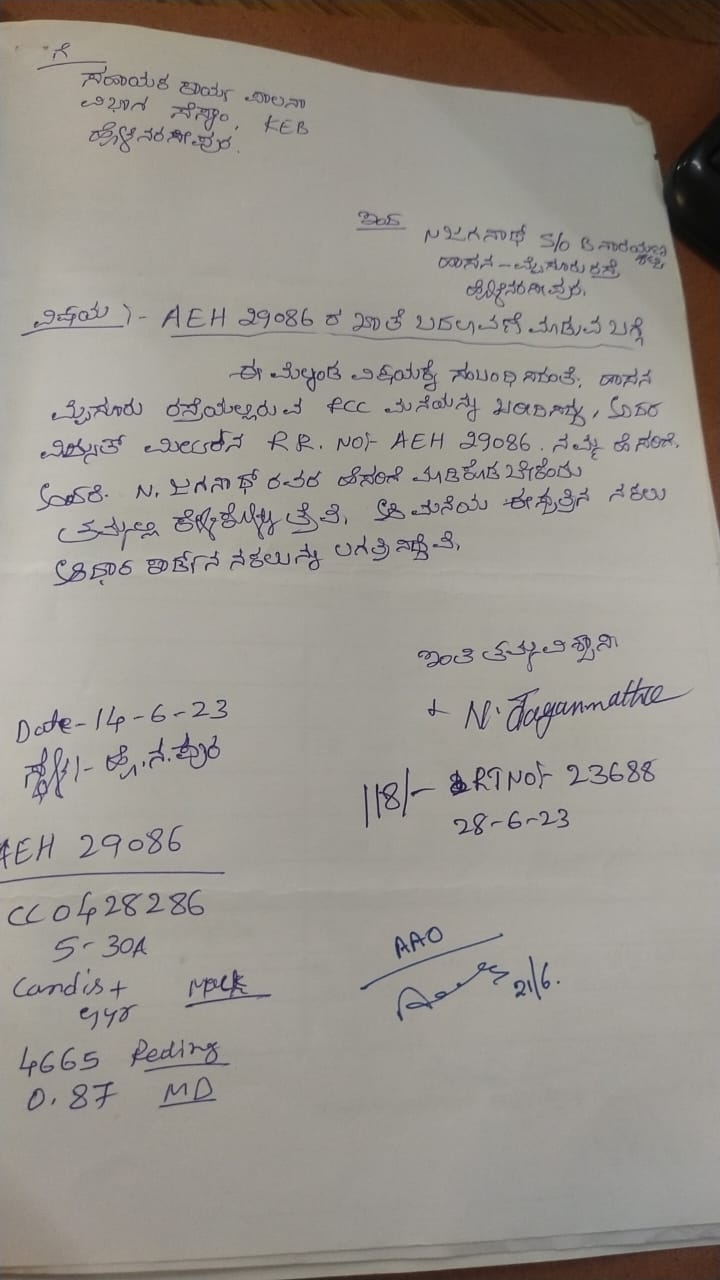 ಗೆ
ಸಹಾಯಕ ಕಾರ್ಯ ಪಾಲನಾ
ವಿಭಾಗ ಸೆಸ್ಕಾಂ, KEB
ಹೊಳೆನರಸೀಪುರ.
ಇಂದ
N ಜಗನಾಥ್ S/o B ನಾರಾಯಣ ಶೆಟ್ಟಿ
ಹಾಸನ - ಮೈಸೂರು ರಸ್ತೆ
ಹೊಳೆನರಸೀಪುರ.
ವಿಷಯ :- AEH 29086 ರ ಖಾತೆ ಬದಲಾವಣೆ ಮಾಡುವ ಬಗ್ಗೆ
ಈ ಮೇಲ್ಕಂಡ ವಿಷಯಕ್ಕೆ ಸಂಬಂಧಿಸಿದಂತೆ, ಹಾಸನ
ಮೈಸೂರು ರಸ್ತೆಯಲ್ಲಿರುವ RCC ಮನೆಯನ್ನು ಖರೀದಿಸಿದ್ದು,
ವಿದ್ಯುತ್ ಮೀಟರಿನ R.R. NO:- AEH 29086. ನಮ್ಮ ಹೆಸರಿಗೆ.
N. ಜಗನಾಥ್ ರವರ ಹೆಸರಿಗೆ ಮಾಡಿಕೊಡಬೇಕೆಂದು
ತಮ್ಮಲ್ಲಿ ಕೇಳಿಕೊಳ್ಳುತ್ತೇವೆ. ಆ ಮನೆಯ ಈ ಸ್ವತ್ತಿನ ನಕಲು
ಆಧಾರ ಕಾರ್ಡಿನ ನಕಲುನ್ನು ಲಗತ್ತಿಸಿದ್ದೇವೆ.
ಇಂತಿ ತಮ್ಮ ವಿಶ್ವಾಸಿ
N. Jagannatha
Date- 14-6-23
ಸ್ಥಳ :- ಹೊ.ನ.ಪುರ
118/- RT NO:- 23688
28-6-23
AEH 29086
CC0428286
5-30A
Candist
4665 Reding
0.87 MD
AAO
21/6.